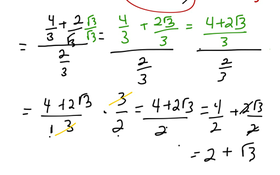 = (4/3 + 2/√3 · √3/√3) / (2/3) = (4/3 + 2√3/3) / (2/3) = ((4+2√3)/3) / (2/3)
= (4+2√3)/3 · 3/2 = (4+2√3)/2 = 4/2 + 2√3/2
= 2 + √3